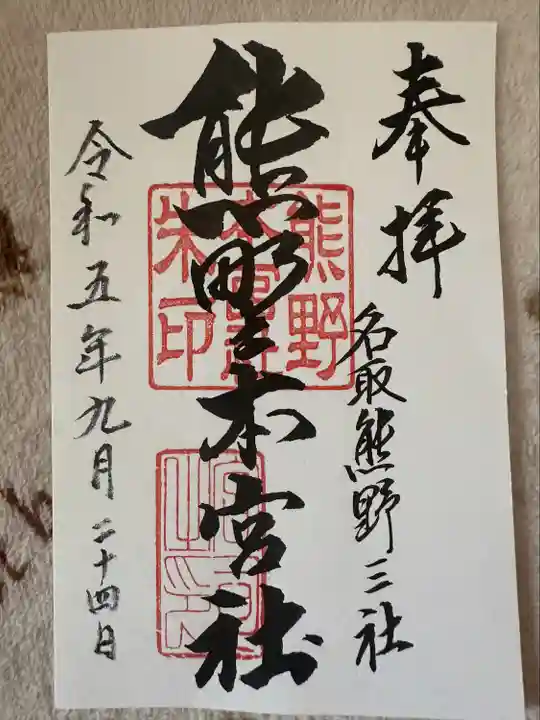 奉拝
名取熊野三社
熊野本宮社
熊野本宮朱印
令和五年九月二十四日